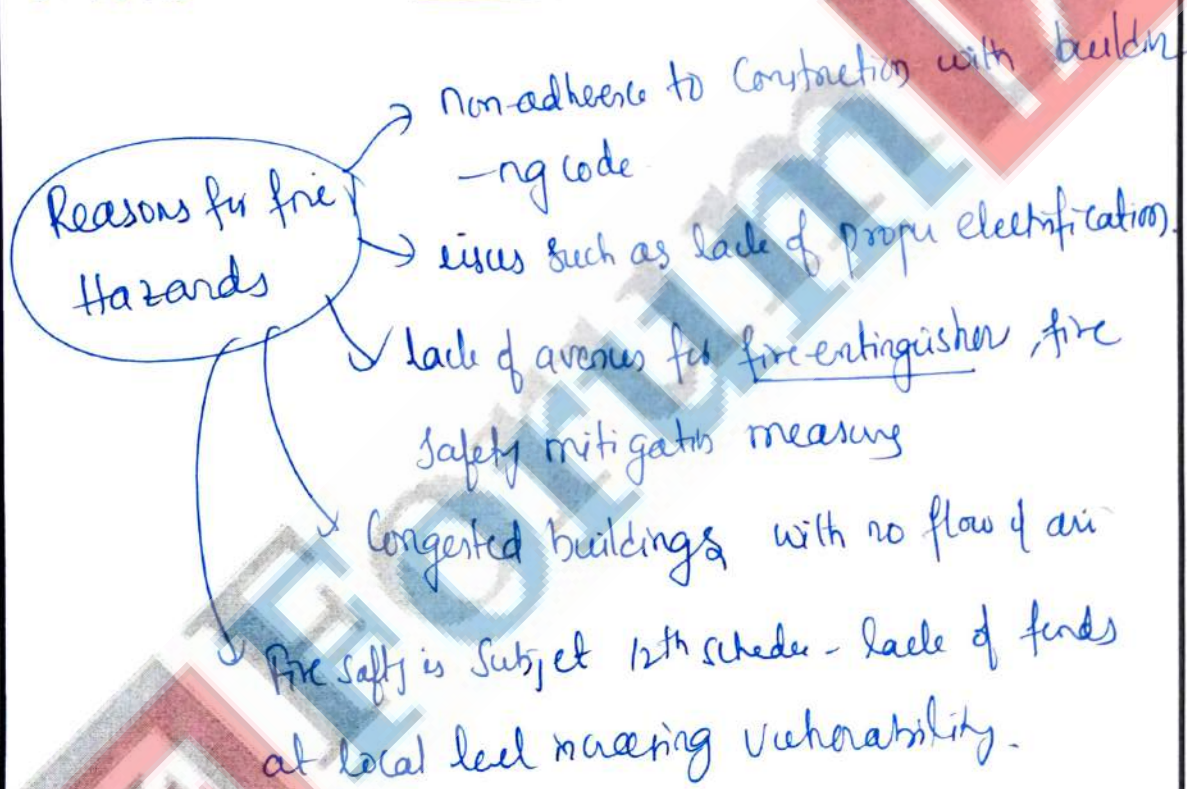 → non-adherence to Construction with buildin
-ng code
Reasons for fire
Hazards
→ issues such as lack of proper electrification.
lack of avenues for fire-extinguisher, fire
safety mitigation measures
Congested buildings with no flow of air
Fire safty is Subjet 12th schedu - lack of funds
at local level increasing vulnerability.
Forum